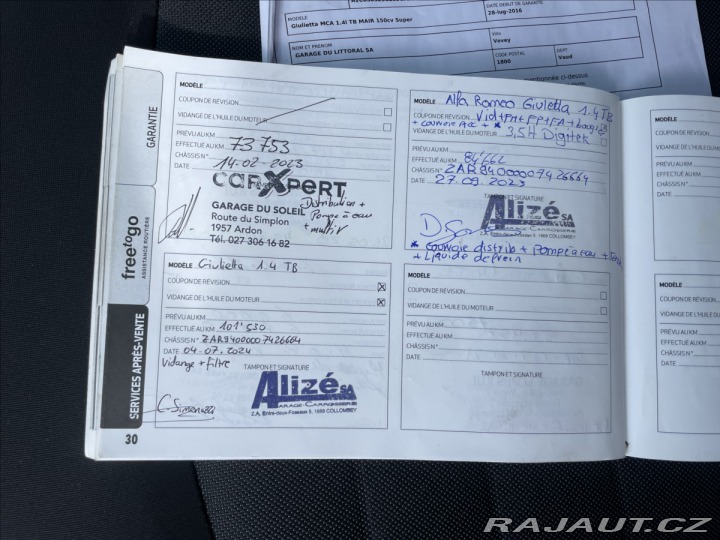 DATE DEBUT DE GARANTIE
28-lug-2016
MODELE
Giulietta MCA 1.4i TB MAIR 150cv Super
NOM ET PRENOM
GARAGE DU LITTORAL SA
Ville
Vevey
CODE POSTAL
1800
DEPT
Vaud
mentionnée ci-dessus
GARANTIE
freetogo
ASSISTANCE ROUTIÈRE
SERVICES APRÈS-VENTE
30
MODÈLE
COUPON DE RÉVISION
VIDANGE DE L'HUILE DU MOTEUR
PRÉVU AU KM
EFFECTUÉ AU KM 73753
CHÂSSIS N°
DATE 14-02-2023
carXpert
GARAGE DU SOLEIL
Route du Simplon
1957 Ardon
Tél. 027 306 16 82
Distribution +
Pompe à eau
MODÈLE Alfa Romeo Giuletta 1.4 TB
COUPON DE RÉVISION
VIDANGE DE L'HUILE DU MOTEUR 3,5H Digitek
PRÉVU AU KM
EFFECTUÉ AU KM
CHÂSSIS N° ZAR94000007426664
DATE 27.09.2023
TAMPON ET SIGNATURE
Alizé SA
* Courroie distrib + Pompe à eau +
+ Liquide de frein
MODÈLE Giulietta 1.4 TB
COUPON DE RÉVISION
VIDANGE DE L'HUILE DU MOTEUR
PRÉVU AU KM
EFFECTUÉ AU KM 101'530
CHÂSSIS N° ZAR94000007426664
DATE 04-07.2024
Vidange + filtre
TAMPON ET SIGNATURE
Alizé SA
GARAGE-CARROSSERIE
Z.A. Entre-deux-Fossaux 5, 1868 COLLOMBEY
MODÈLE
COUPON DE RÉVISION
VIDANGE DE L'HUILE DU MOTEUR
PRÉVU AU KM
EFFECTUÉ AU KM
CHÂSSIS N°
DATE
TAMPON ET SIGNATURE
MODÈLE
COUPON DE RÉVISION
VIDANGE DE L'H
PRÉVU AU KM
EFFECTUÉ AU KM
CHÂSSIS N°
DATE
MODÈLE
COUPON DE RÉV
VIDANGE DE L'H
PRÉVU AU KM
EFFECTUÉ AU K
CHÂSSIS N°
DATE
RAJAUT.CZ